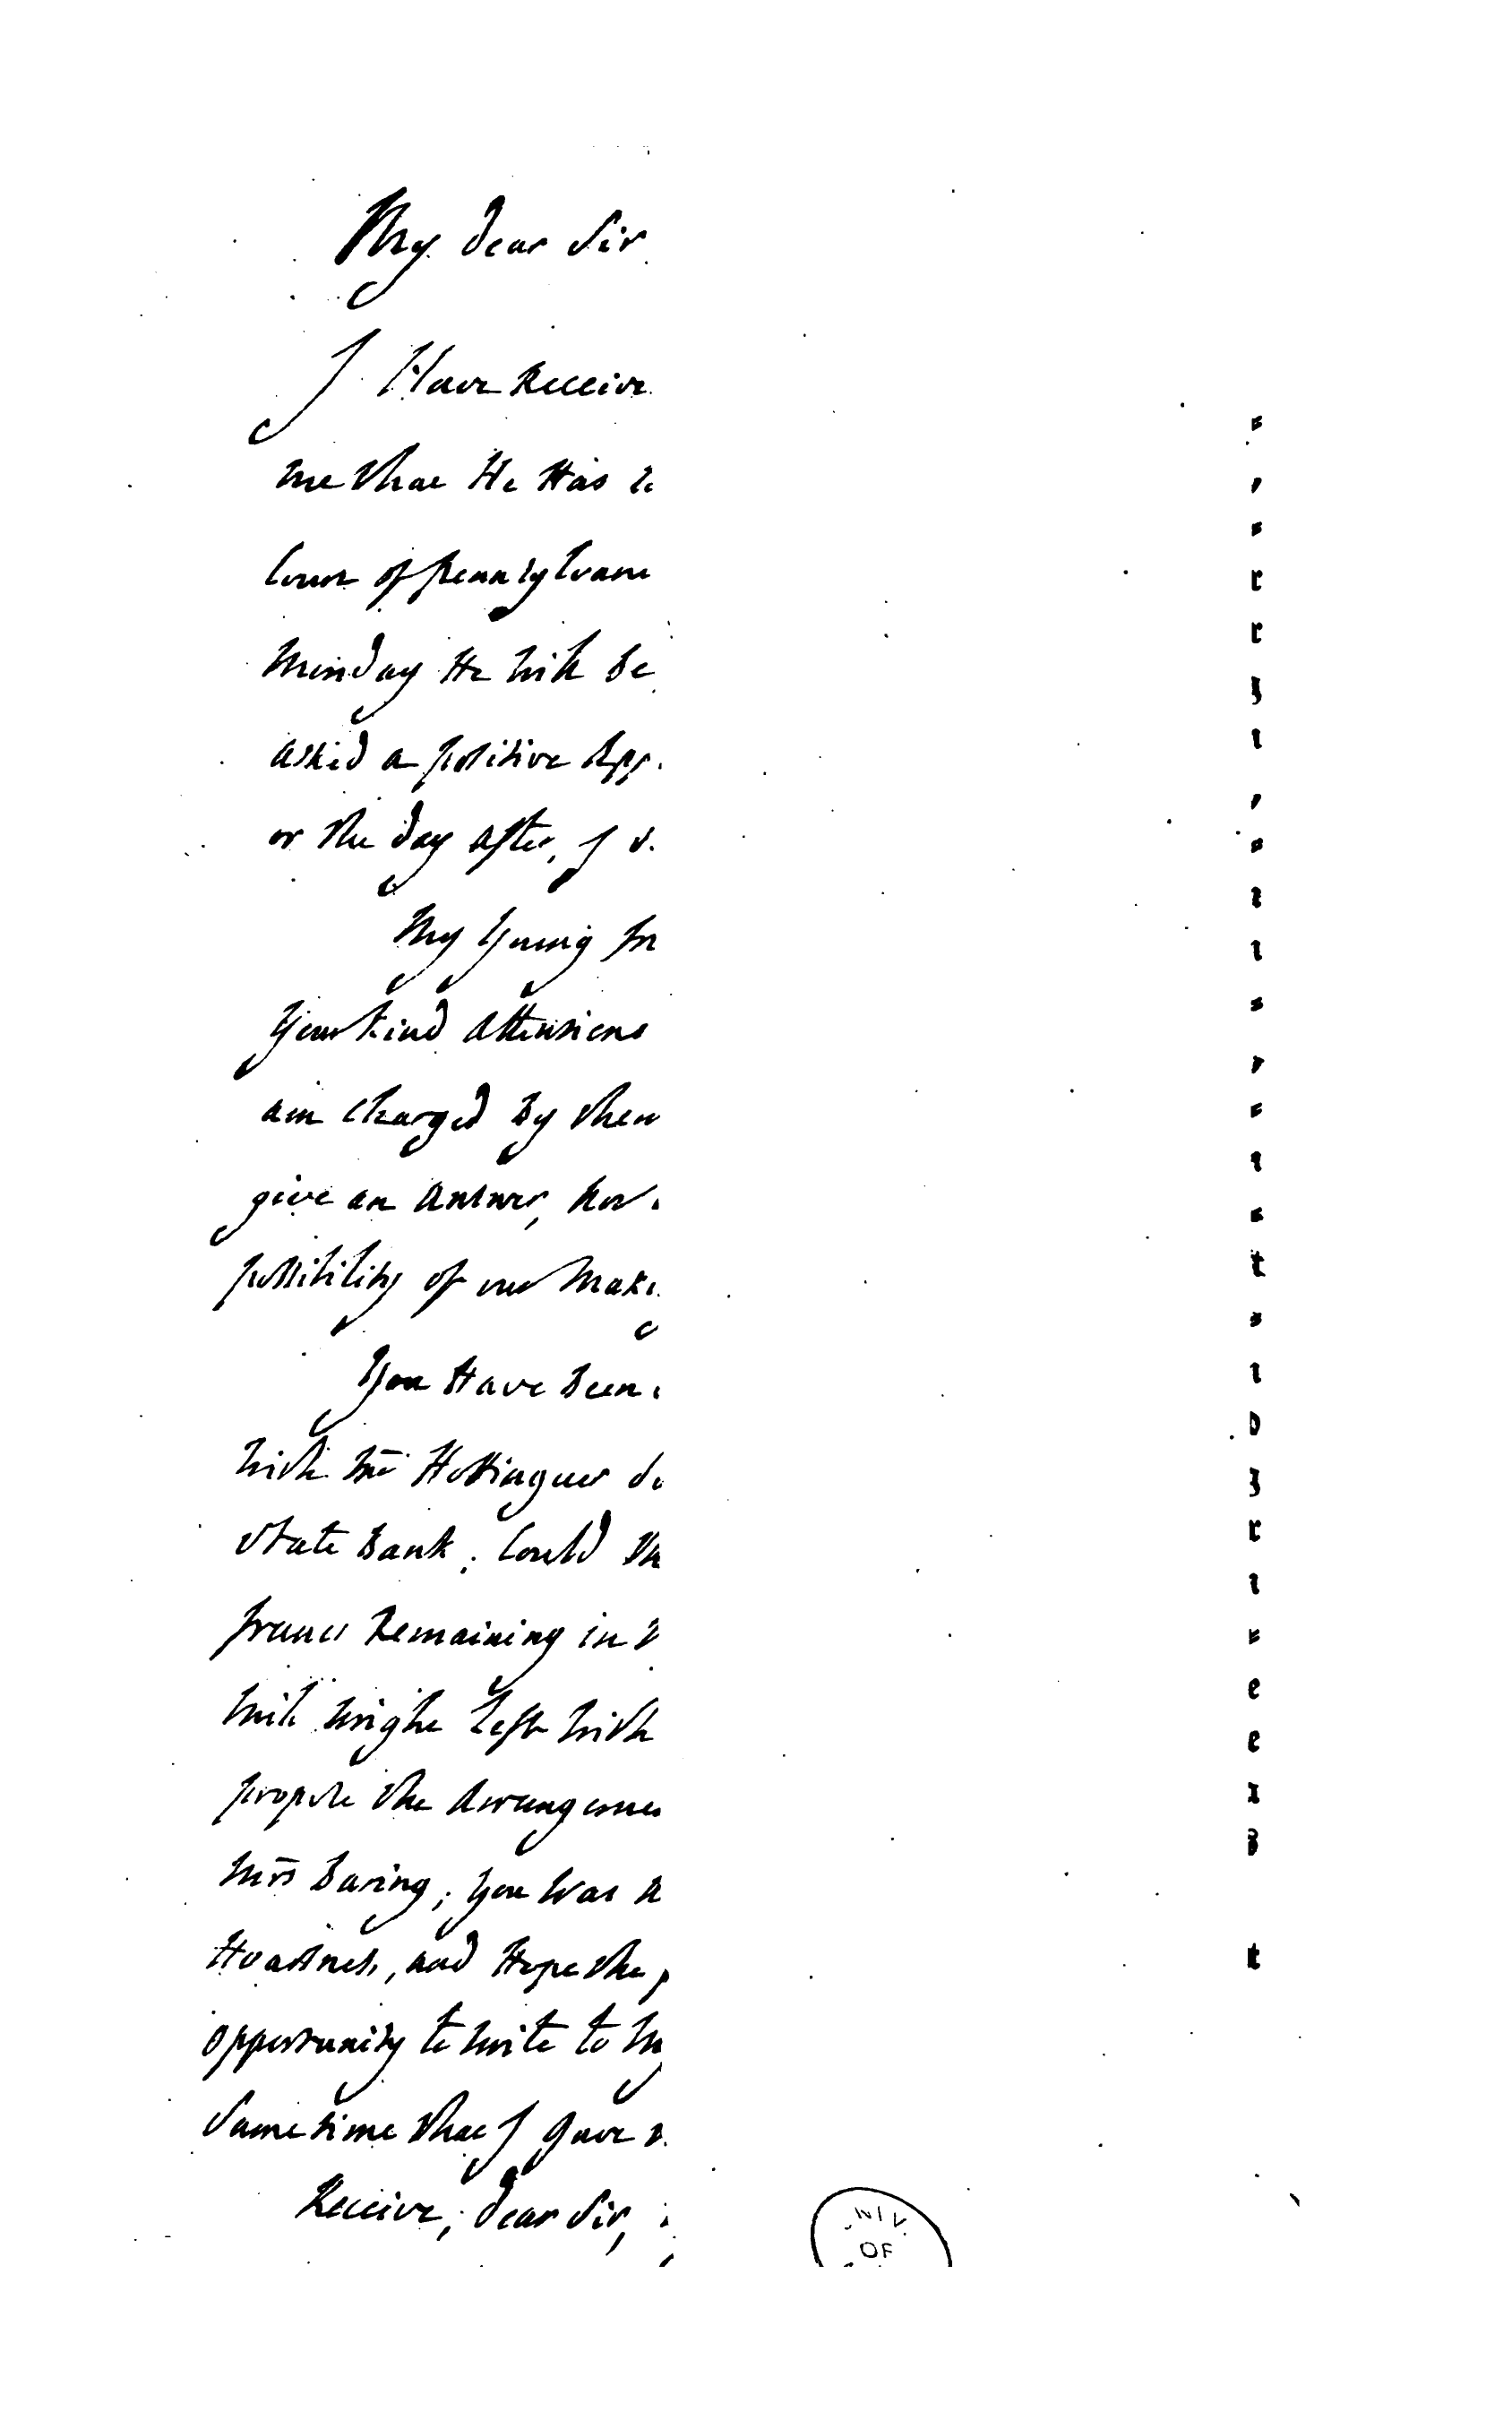 My dear Sir
I Have Receive
me that He Has
Court of Pennsylvani
Monday He will Be
asked a positive App
or the day after, I
My Young
Your kind Attentions
am charged By them
give an Answer, how
possibility of our Maki
You Have Been
with Mr Hottinguer
State Bank; Could
francs Remaining in
Miss Wright Left with
propose the Arrangemen
Mrs Baring; you was
and Hope the
opportunity to write to
Same time that I gave
Receive, dear Sir,
UNIV.
OF